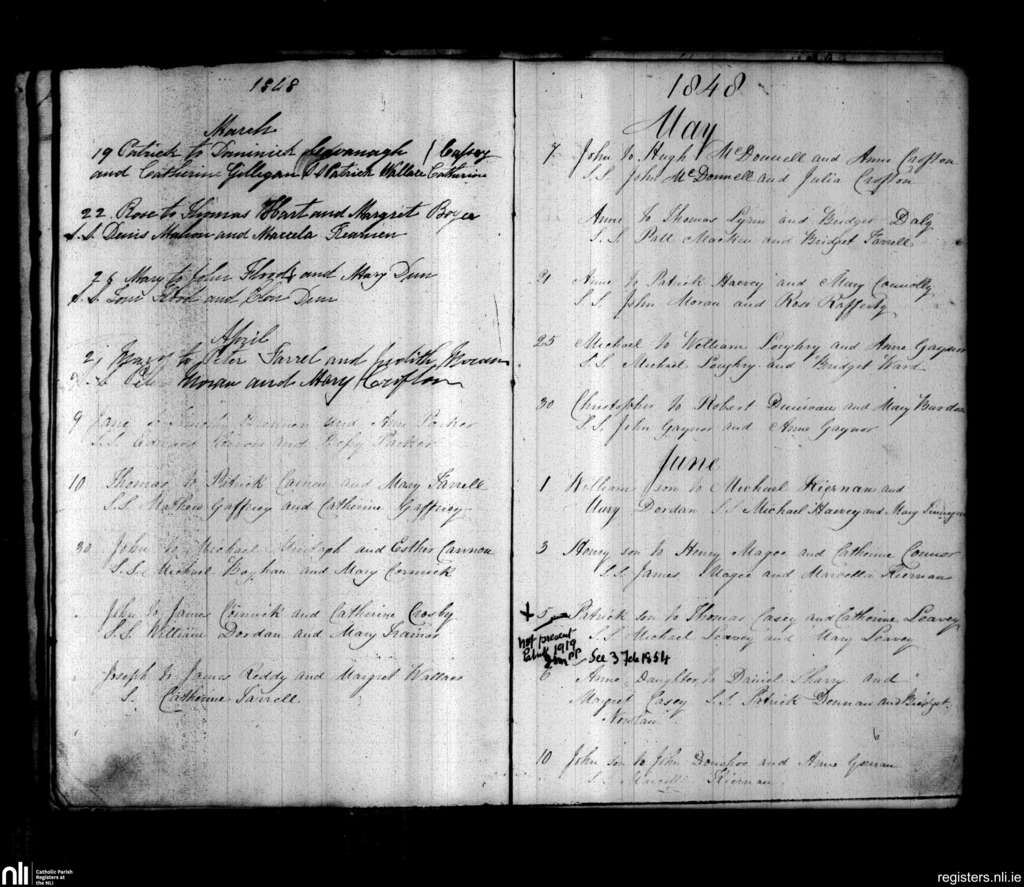 1848
March
19 Patrick to Daminick Cavanagh / Casey
and Catherin Gilligan S S Patrick Wallace Catherine
22 Rose to Thomas Hart and Margret Boyer
S.S. Denis Mahon and Marcela Kearnen
28 Mary to John Flood and Mary Dun
S.S. Flood and Dun
April
2 Mary to Peter Farrel and Judith Moran
S.S. Peter Moran and Mary Crofton
9 Jane to and Ann Parker
S.S. and Parker
10 Thomas to Patrick and Mary Farrell
S.S. Mathew Gaffney and Catherine Gaffney
30 John to Michael and Esther Cannon
S.S. Michael and Mary Cormick
John to James Cormick and Catherine Crosby
S.S. William Dordan and Mary
Joseph to James Reddy and Margret
S. Catherine Farrell
1848
May
7 John to Hugh McDonnell and Anne Crofton
S.S. John McDonnell and Julia Crofton
Anne to Thomas and Bridget Daly
S.S. Patt and Bridget Farrell
21 Anne to Patrick Harvey and Mary Connolly
S.S. John Moran and Rose Rafferty
25 Michael to William Loughry and Anne Gaynor
S.S. Michael Loughry and Bridget Ward
30 Christopher to Robert Duncan and Mary
S.S. John Gaynor and Anne Gaynor
June
1 William son to Michael Kiernan and
Mary Dordan S.S. Michael Harvey and Mary
3 Henry son to Henry Magee and Catherine Connor
S.S. James Magee and Marcella Kiernan
+ 5 Patrick son to Thomas Casey and Catherine Leavey
S.S. Michael Leavey and Mary Leavey
Not present
1919
PP
See 3 Feb 1854
6 Anne Daughter to Daniel and
Margret Casey S.S. Patrick and Bridget
10 John son to John and Anne
S.S. Kiernan
6
nli
Catholic Parish
Registers at
the NLI
registers.nli.ie